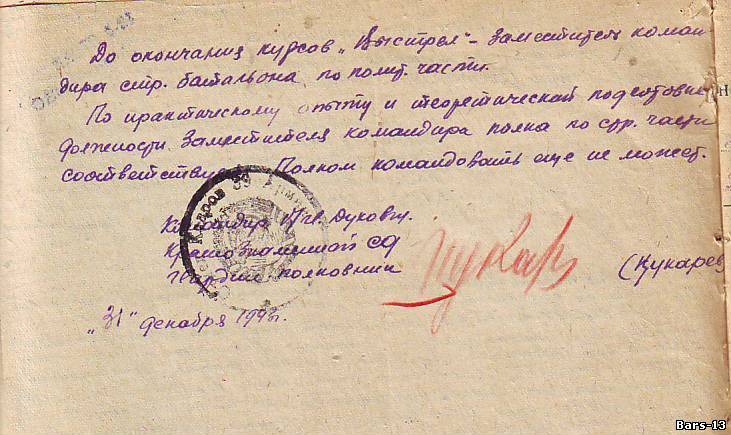 До окончания курсов „Выстрел" - заместитель коман
дира стр. батальона по полит. части.
По практическому опыту и теоретической подготовке
должности заместителя командира полка по стр. части
соответствует. Полком командовать еще не может.
Командир Гв. Духовщ.
Краснознаменной СД
Гвардии полковник (Кукарев
„31" декабря 194 г.
Кадров 39 Арми
Bars-13